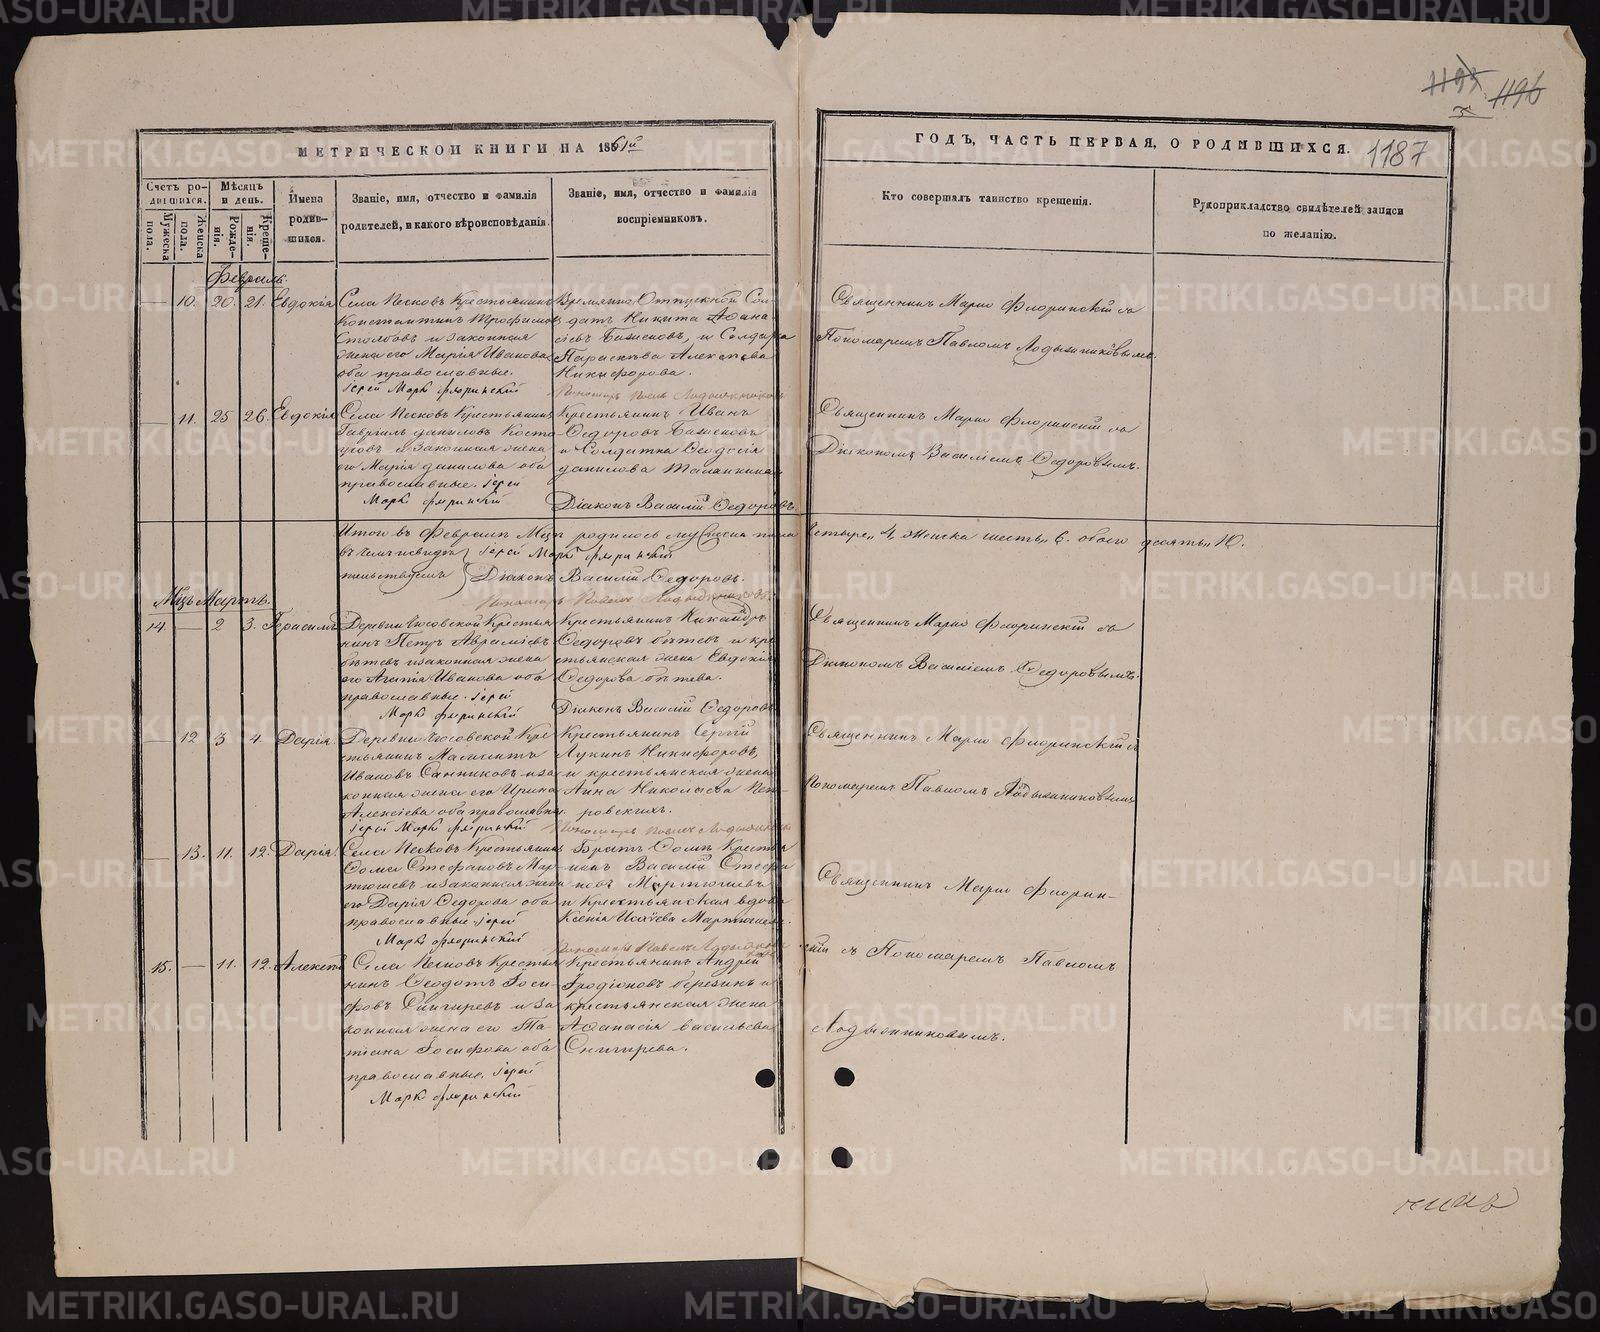 1187
МЕТРИЧЕСКОЙ КНИГИ НА 1861й
ГОДЪ, ЧАСТЬ ПЕРВАЯ, О РОДИВШИХСЯ.
Счетъ родившихся.
Мужеска пола.
Женска пола.
Мѣсяцъ и день.
Рожденія.
Крещенія.
Имена родившихся.
Званіе, имя, отчество и фамилія
родителей, и какого вѣроисповѣданія.
Званіе, имя, отчество и фамилія
воспріемниковъ.
Кто совершалъ таинство крещенія.
Рукоприкладство свидѣтелей записи
по желанію.
Февраль
10. 20. 21. Евдокія
Села Песковъ Крестьянинъ
Константинъ Трофимовъ
Столбовъ и законная
жена его Марія Иванова
оба православные.
Іерей Маркъ Флоринскій
Временно Отпускной Сол-
датъ Никита Аѳана-
сьевъ Баженовъ, и Солдатка
Параскева Алексѣева
Никифорова.
Священникъ Марко Флоринскій съ
Пономаремъ Павломъ Ладыжниковымъ.
11. 25 26. Евдокія
Села Песковъ Крестьянинъ
Гавріилъ Даниловъ
и Законная жена
его Марія Данилова оба
православные. Іерей
Маркъ Флоринскій
Крестьянинъ Иванъ
Ѳедоровъ Баженовъ
и Солдатка Ѳеодосія
Данилова
Діаконъ Василій Ѳедоровъ.
Священникъ Марко Флоринскій съ
Діакономъ Василіемъ Ѳедоровымъ.
Итого въ Февралѣ Мцѣ родилось мужеска пола
четыре, 4, женска шесть, 6. обоего десять, 10.
Іерей Маркъ Флоринскій
Діаконъ Василій Ѳедоровъ.
Пономарь Павелъ Ладыжниковъ
Мцъ Мартъ.
14. 2 3. Герасимъ
Деревни Чусовской Крестья-
нинъ Петръ Авраміевъ
и законная жена
его Агапія Иванова оба
православные. Іерей
Маркъ Флоринскій
Крестьянинъ Никандръ
Ѳедоровъ и кре-
стьянская жена Евдокія
Ѳедорова
Діаконъ Василій Ѳедоровъ
Священникъ Марко Флоринскій съ
Діакономъ Василіемъ Ѳедоровымъ.
12 3 4. Дарія.
Деревни Чусовской Кре-
стьянинъ
Ивановъ Санниковъ и за-
конная жена его Ирина
Алексіева оба православны.
Іерей Маркъ Флоринскій
Крестьянинъ Сергій
Лукинъ Никифоровъ,
и крестьянская жена
Анна Николаева
Священникъ Марко Флоринскій съ
Пономаремъ Павломъ Ладыжниковымъ
13. 11. 12. Дарія.
Села Песковъ Крестьянинъ
Ѳома Стефановъ Мар-
тюшевъ и законная жена
его Дарія Ѳедорова оба
православные. Іерей
Маркъ Флоринскій
Братъ Ѳомы Крестья-
нинъ Василій Стефа-
новъ Мартюшевъ
и Крестьянская вдова
Ксенія Исаева Мартюшева.
Священникъ Марко Флорин-
скій съ Пономаремъ Павломъ
Ладыжниковымъ.
15. 11. 12. Алексій
Села Песковъ Крестья-
нинъ Ѳеодотъ Іоси-
фовъ Снигиревъ и за-
конная жена его Та-
тіана Іосифова оба
православные. Іерей
Маркъ Флоринскій
Крестьянинъ Андрей
Иродіоновъ Березинъ и
крестьянская жена
Аѳанасія Васильева
Снигирева.
METRIKI.GASO-URAL.RU